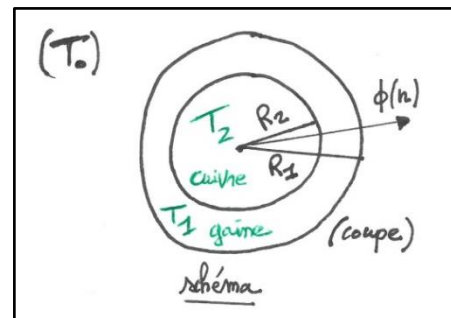 (T₀)
ϕ(r)
T₂
R₂
R₁
cuivre
T₁
gaine
(coupe)
schéma